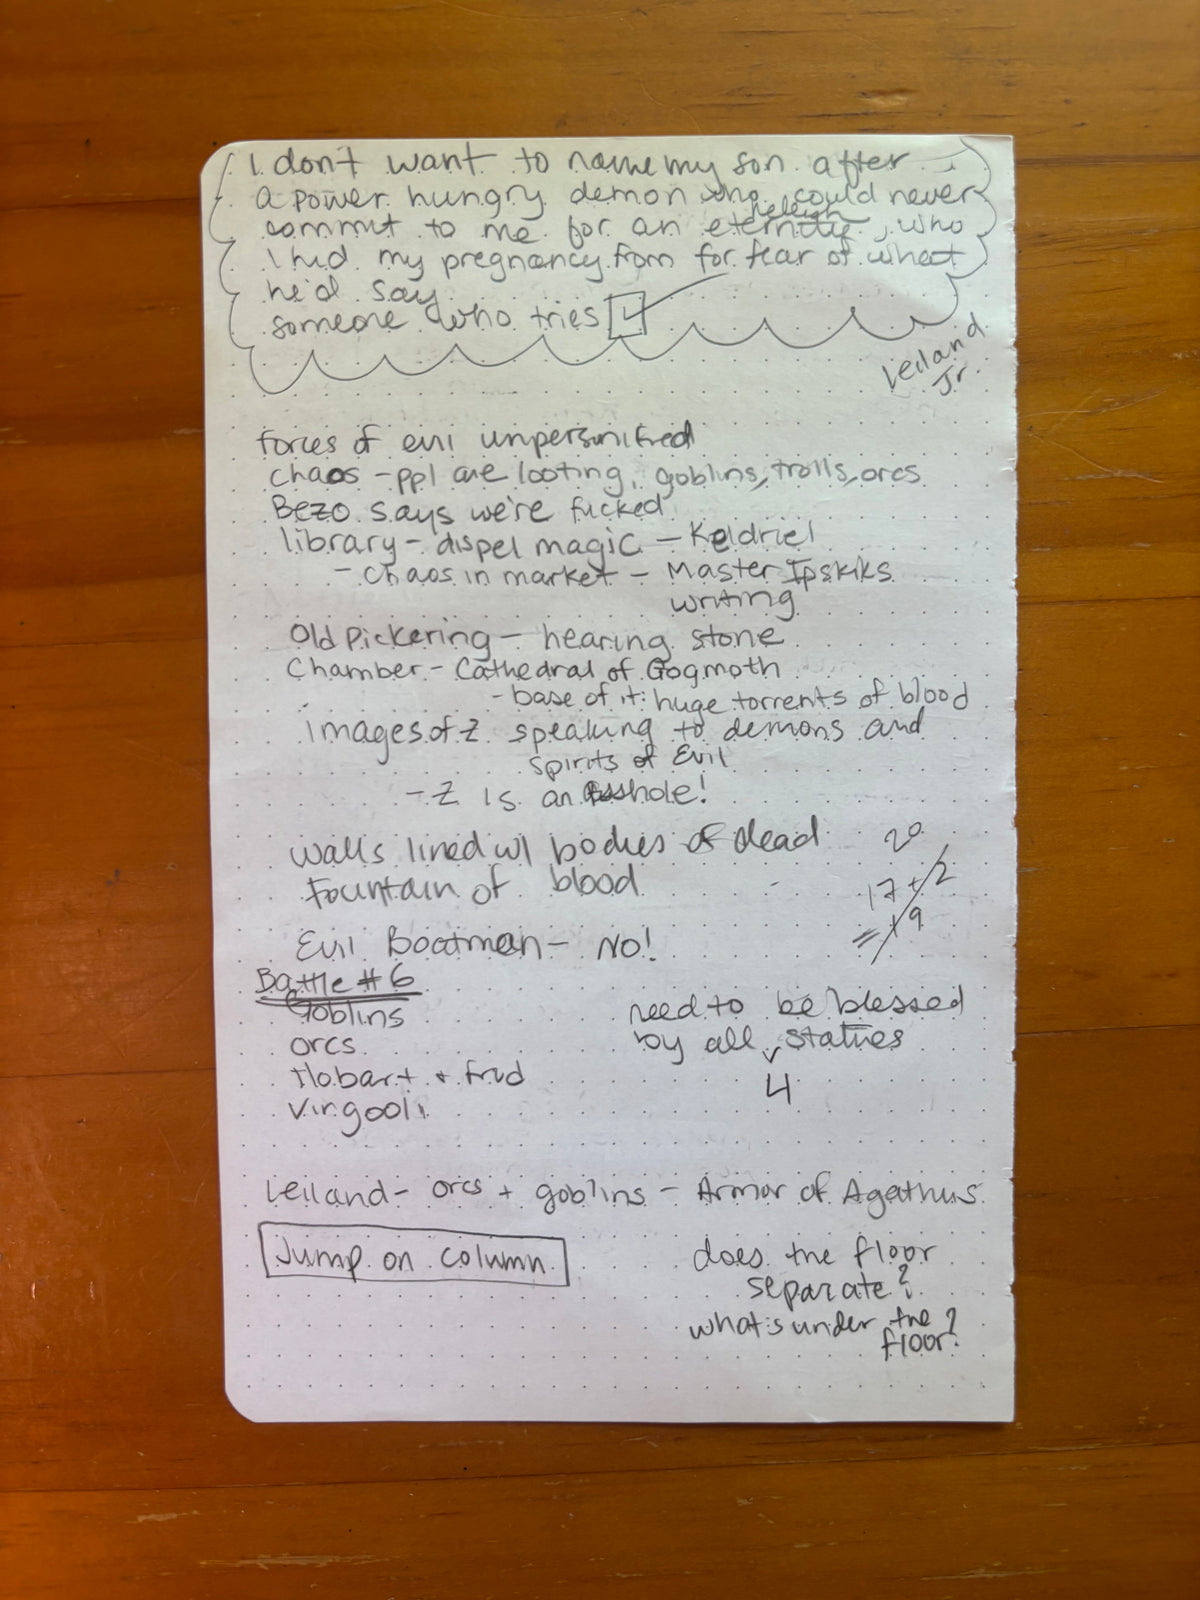 I don't want to name my son after
a power hungry demon who could never
commit to me for an eternity, who
I hid my pregnancy from for fear of what
he'd say
someone who tries
Leiland
Jr.
forces of evil unpersonified
chaos - ppl are looting, goblins, trolls, orcs
Bezo says we're fucked
library - dispel magic - Keldriel
- chaos in market - Master Ipskiks
writing
Old Pickering - hearing stone
Chamber - Cathedral of Gogmoth
- base of it: huge torrents of blood
images of Z speaking to demons and
spirits of Evil
- Z is an asshole!
walls lined w/ bodies of dead
fountain of blood
20
17 + 2
= 19
Evil Boatman - NO!
Battle #6
Goblins
orcs
Hobart + frud
Vingooli
need to be blessed
by all statues
4
Leiland - orcs + goblins - Armor of Agathus
Jump on column
does the floor
separate?
what's under the
floor?